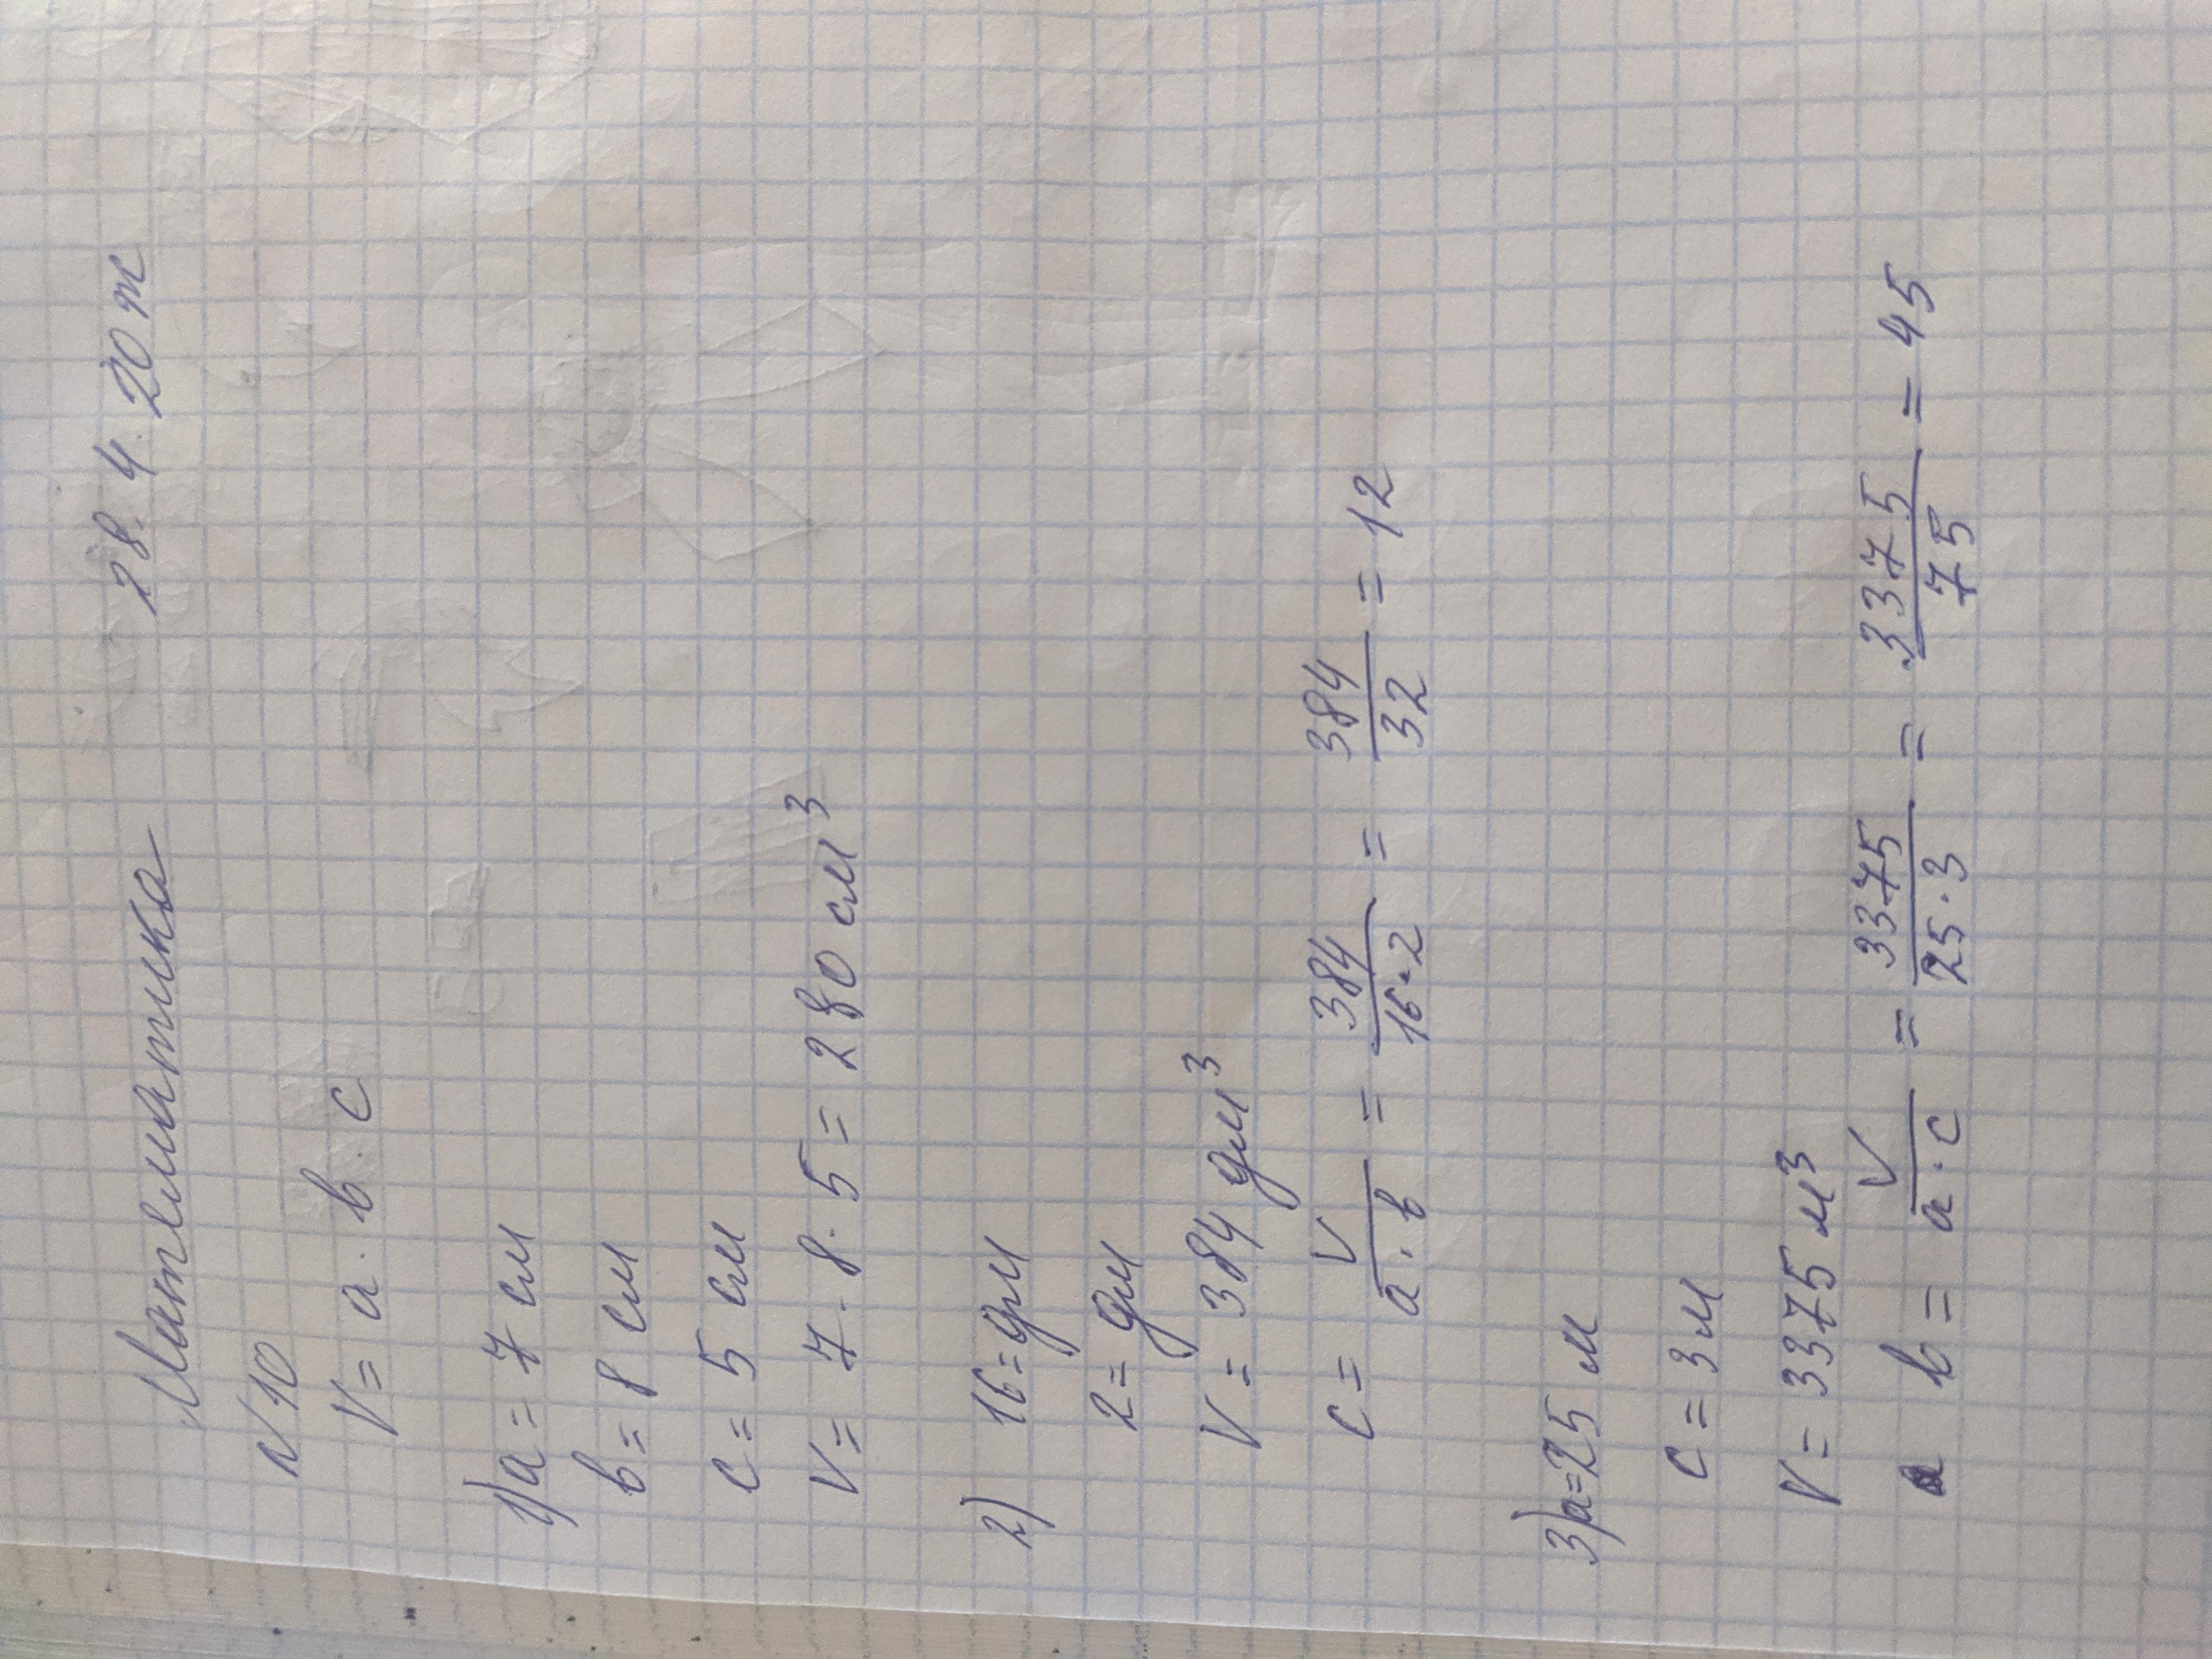 Математика 28. 4. 20 г
N 10
V = a · b · c
1) a = 7 см
b = 8 см
c = 5 см
V = 7 · 8 · 5 = 280 см³
2) 16 = дм
2 = дм
V = 384 дм³
c = V / a · b = 384 / 16 · 2 = 384 / 32 = 12
3) a = 25 м
c = 3 м
V = 3375 м³
b = V / a · c = 3375 / 25 · 3 = 3375 / 75 = 45